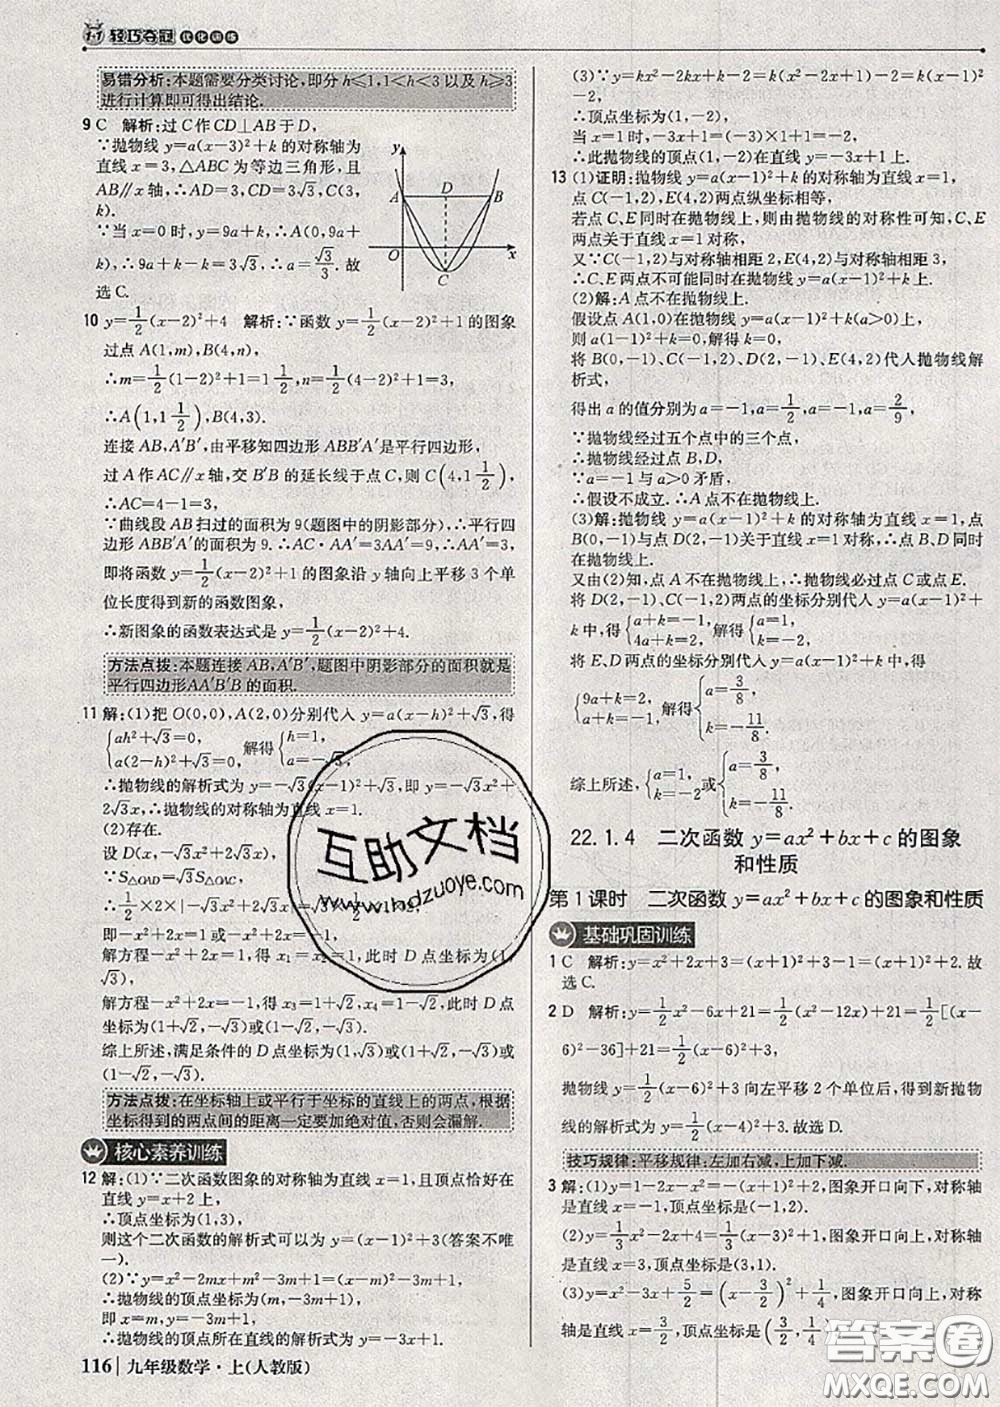 1+1 轻巧夺冠 优化训练
易错分析:本题需要分类讨论,即分 h⩽1,1<h<3 以及 h⩾3
进行计算即可得出结论.
9 C 解析:过 C 作 CD⊥AB 于 D,
∵抛物线 y=a(x-3)²+k 的对称轴为
直线 x=3,△ABC 为等边三角形,且
AB∥x 轴,∴AD=3,CD=3√3,C(3,
k).
∵当 x=0 时,y=9a+k,∴A(0,9a+
k),∴9a+k-k=3√3,∴a=√3/3. 故
选 C.
y
A D B
O x
C
10 y=1/2(x-2)²+4 解析:∵函数 y=1/2(x-2)²+1 的图象
过点 A(1,m),B(4,n),
∴m=1/2(1-2)²+1=1 1/2,n=1/2(4-2)²+1=3,
∴A(1,1 1/2),B(4,3).
连接 AB,A′B′,由平移知四边形 ABB′A′是平行四边形,
过 A 作 AC∥x 轴,交 B′B 的延长线于点 C,则 C(4,1 1/2),
∴AC=4-1=3,
∵曲线段 AB 扫过的面积为 9(题图中的阴影部分),∴平行四
边形 ABB′A′的面积为 9. ∴AC·AA′=3AA′=9,∴AA′=3,
即将函数 y=1/2(x-2)²+1 的图象沿 y 轴向上平移 3 个单
位长度得到新的函数图象,
∴新图象的函数表达式是 y=1/2(x-2)²+4.
方法点拨:本题连接 AB,A′B′,题图中阴影部分的面积就是
平行四边形AA′B′B 的面积.
11 解:(1)把 O(0,0),A(2,0)分别代入 y=a(x-h)²+√3,得
{ah²+√3=0, a(2-h)²+√3=0, 解得{h=1, a=-√3,
∴抛物线的解析式为 y=-√3(x-1)²+√3,即 y=-√3x²+
2√3x,∴抛物线的对称轴为直线 x=1.
(2)存在.
设 D(x,-√3x²+2√3x),
∵S△OAD=√3S
∴1/2×2×|-√3x²+2√3x|
即-x²+2x=1 或-x²+2x=-1,
解方程-x²+2x=1,得 x₁=x₂=1,此时 D 点坐标为(1,
√3),
解方程-x²+2x=-1,得 x₃=1+√2,x₄=1-√2,此时 D 点
坐标为(1+√2,-√3)或(1-√2,-√3).
综上所述,满足条件的 D 点坐标为(1,√3)或(1+√2,-√3)或
(1-√2,-√3).
方法点拨:在坐标轴上或平行于坐标的直线上的两点,根据
坐标得到的两点间的距离一定要加绝对值,否则会漏解.
核心素养训练
12 解:(1)∵二次函数图象的对称轴为直线 x=1,且顶点恰好在
直线 y=x+2 上,
∴顶点坐标为(1,3),
则这个二次函数的解析式可以为 y=(x-1)²+3(答案不唯
一).
(2)∵y=x²-2mx+m²-3m+1=(x-m)²-3m+1,
∴抛物线的顶点坐标为(m,-3m+1),
即 x=m,y=-3m+1,
∴抛物线的顶点所在直线的解析式为 y=-3x+1.
116 九年级数学·上(人教版)
(3)∵y=kx²-2kx+k-2=k(x²-2x+1)-2=k(x-1)²
-2,
∴顶点坐标为(1,-2).
当 x=1 时,-3x+1=(-3)×1+1=-2,
∴此抛物线的顶点(1,-2)在直线 y=-3x+1 上.
13 (1)证明:抛物线 y=a(x-1)²+k 的对称轴为直线 x=1,
点 C(-1,2),E(4,2)两点纵坐标相等,
若点 C、E 同时在抛物线上,则由抛物线的对称性可知,C、E
两点关于直线 x=1 对称,
又∵C(-1,2)与对称轴相距 2,E(4,2)与对称轴相距 3,
∴C、E 两点不可能同时在抛物线 y=a(x-1)²+k 上.
(2)解:A 点不在抛物线上.
假设点 A(1,0)在抛物线 y=a(x-1)²+k(a>0)上,
则 a(1-1)²+k=0,解得 k=0.
将 B(0,-1)、C(-1,2)、D(2,-1)、E(4,2)代入抛物线解
析式,
得出 a 的值分别为 a=-1,a=1/2,a=-1,a=2/9,
∵抛物线经过五个点中的三个点,
∴抛物线经过点 B,D,
∵a=-1 与 a>0 矛盾,
∴假设不成立. ∴A 点不在抛物线上.
(3)解:抛物线 y=a(x-1)²+k 的对称轴为直线 x=1,点
B(0,-1)与点 D(2,-1)关于直线 x=1 对称,∴点 B、D 同时
在抛物线上.
又由(2)知,点 A 不在抛物线上,∴抛物线必过点 C 或点 E.
将 D(2,-1)、C(-1,2)两点的坐标分别代入 y=a(x-1)²+
k 中,得{a+k=-1, 4a+k=2, 解得{a=1, k=-2.
将 E、D 两点的坐标分别代入 y=a(x-1)²+k 中,得
{9a+k=2, a+k=-1, 解得{a=3/8, k=-11/8.
综上所述,{a=1, k=-2 或{a=3/8, k=-11/8.
22.1.4 二次函数 y=ax²+bx+c 的图象
和性质
第 1 课时 二次函数 y=ax²+bx+c 的图象和性质
基础巩固训练
1 C 解析:y=x²+2x+3=(x+1)²+3-1=(x+1)²+2. 故
选 C.
2 D 解析:y=1/2x²-6x+21=1/2(x²-12x)+21=1/2[(x-
6)²-36]+21=1/2(x-6)²+3,
抛物线 y=1/2(x-6)²+3 向左平移 2 个单位后,得到新抛物
线的解析式为 y=1/2(x-4)²+3. 故选 D.
技巧规律:平移规律:左加右减,上加下减.
3 解:(1)y=1-2x-x²=-(x+1)²+2,图象开口向下,对称轴
是直线 x=-1,顶点坐标是(-1,2).
(2)y=1/3x²-2x+4=1/3(x-3)²+1,图象开口向上,对称轴
是直线 x=3,顶点坐标是(3,1).
(3)y=x²-3x+5/2=(x-3/2)²+1/4,图象开口向上,对称
轴是直线 x=3/2,顶点坐标是(3/2,1/4).
互助文档
www.hdzuoye.com
答案圈
MXQE.COM